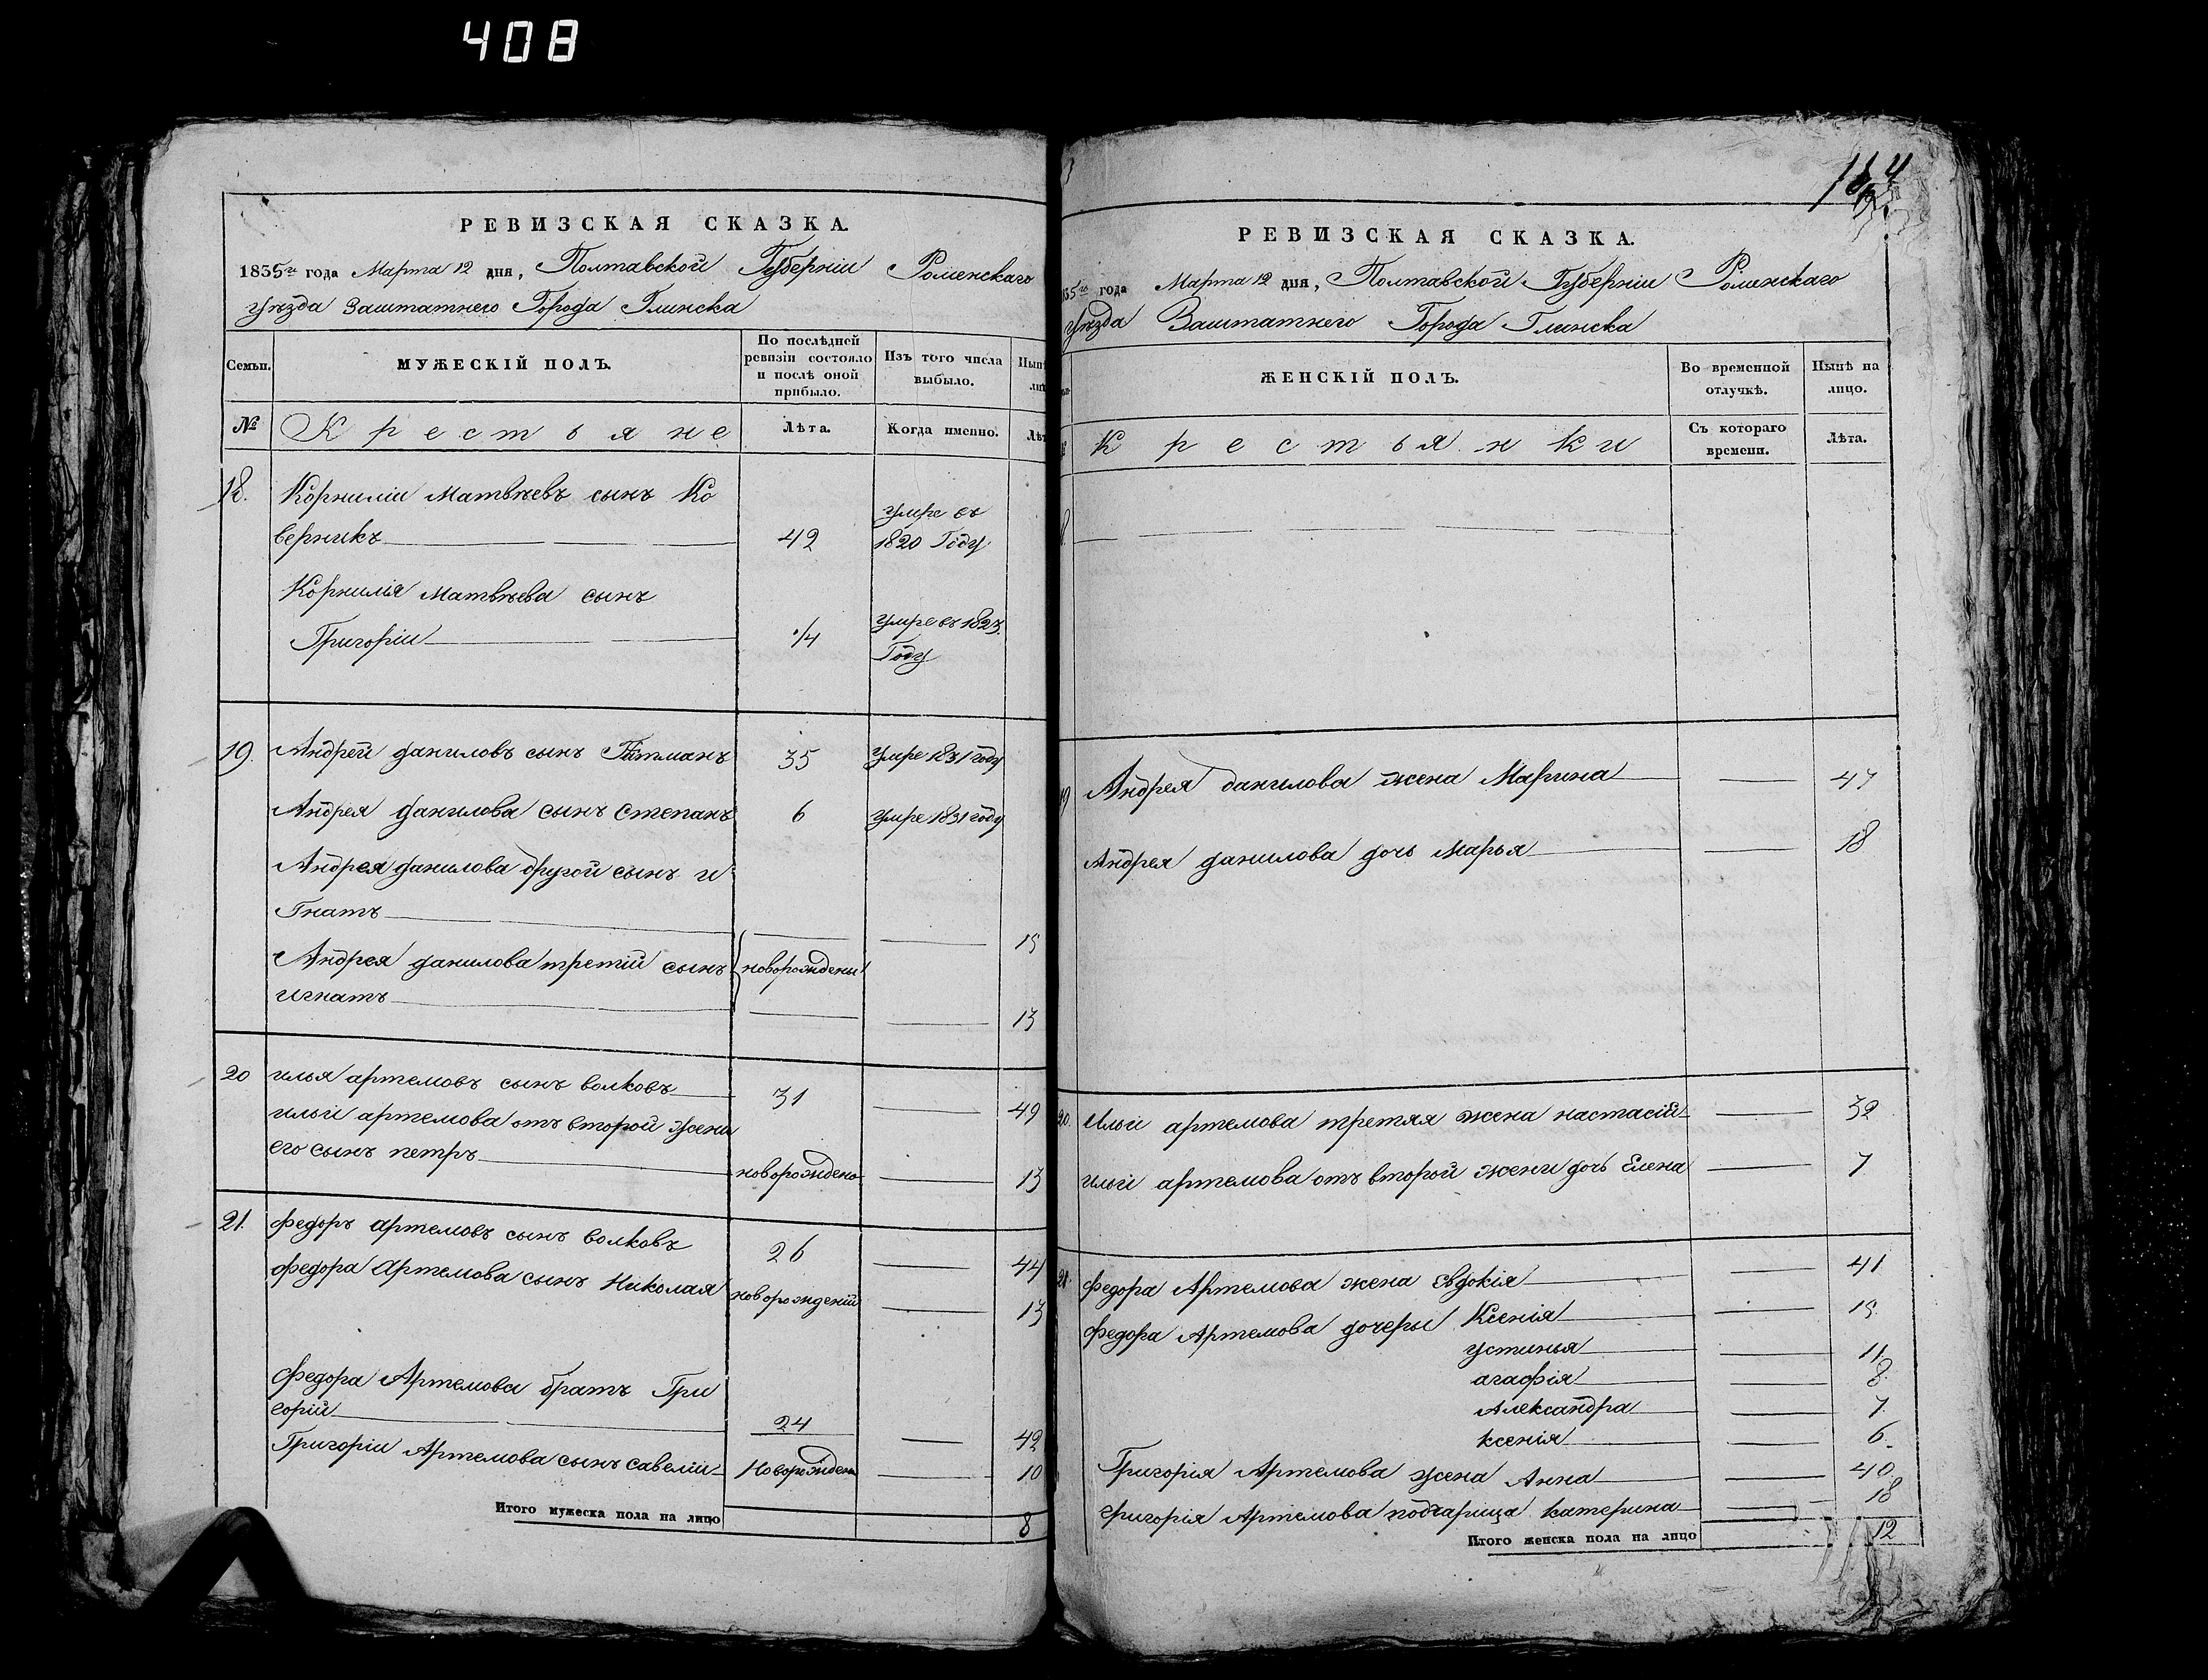 408
164
РЕВИЗСКАЯ СКАЗКА.
1835го года Марта 12 дня, Полтавской Губерніи Роменскаго
уѣзда Заштатнего Города Глинска
Семьи. МУЖЕСКІЙ ПОЛЪ. По послѣдней ревизіи состояло и послѣ оной прибыло. Изъ того числа выбыло.
№ Крестьяне Лѣта. Когда именно.
18. Корниліи Матвѣевъ сынъ Ко
верникъ 42 умре въ 1820 Году
Корнилія Матвѣева сынъ
Григоріи 1/4 умре въ 1823. Году
19. Андрей даниловъ сынъ 35 умре 1831 году
Андрея данилова сынъ степанъ 6 умре 1831 году
Андрея данилова другой сынъ и
гнатъ 15
Андрея данилова третій сынъ новорождены
игнатъ 13
20 илья артемовъ сынъ волковъ 31 49
ильи артемова отъ второй жени
его сынъ петръ новорождено 13
21. федоръ артемовъ сынъ волковъ 26 44
федора Артемова сынъ Николая новорожденій 13
федора Артемова братъ Гри
горій 24 42
Григоріи Артемова сынъ савеліи Новорожден 10
Итого мужеска пола на лицо 8
РЕВИЗСКАЯ СКАЗКА.
835го года Марта 12 дня, Полтавской Губерніи Роменскаго
уѣзда Заштатнего Города Глинска
ЖЕНСКІЙ ПОЛЪ. Во временной отлучкѣ. Нынѣ на лицо.
Крестьянки Съ котораго времени. Лѣта.
8.
19 Андрея данилова жена Марина 47
Андрея данилова дочь марья 18
20. Ильи артемова третяя жена настасій 32
ильи артемова отъ второй жени дочь Елена 7
21. федора Артемова жена Евдокія 41
федора Артемова дочеры Ксенія 15.
устинья 11.
агафія 8.
Александра 7.
ксенія 6.
Григорія Артемова жена Анна 40.
григорія Артемова подчарица катерина 18
Итого женска пола на лицо 12